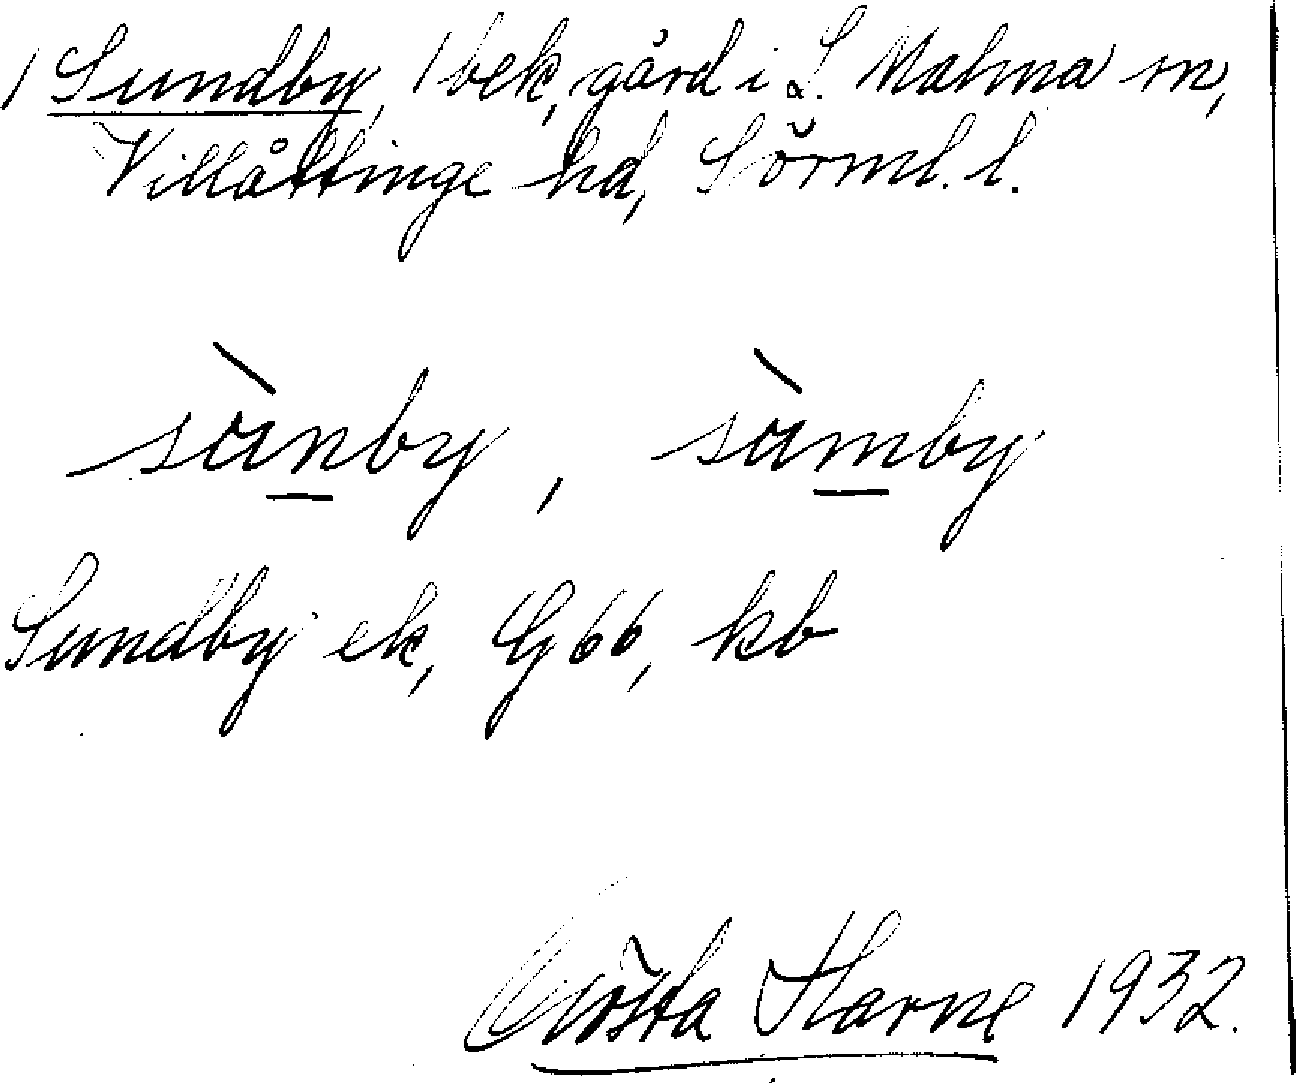 1 Sundby, 1 bek, gård i L. Malma sn,
Villåttinge hd, Sörml. l.
sànby, sàmby
Sundby ek, G 66, kb
Gösta Harne 1932.